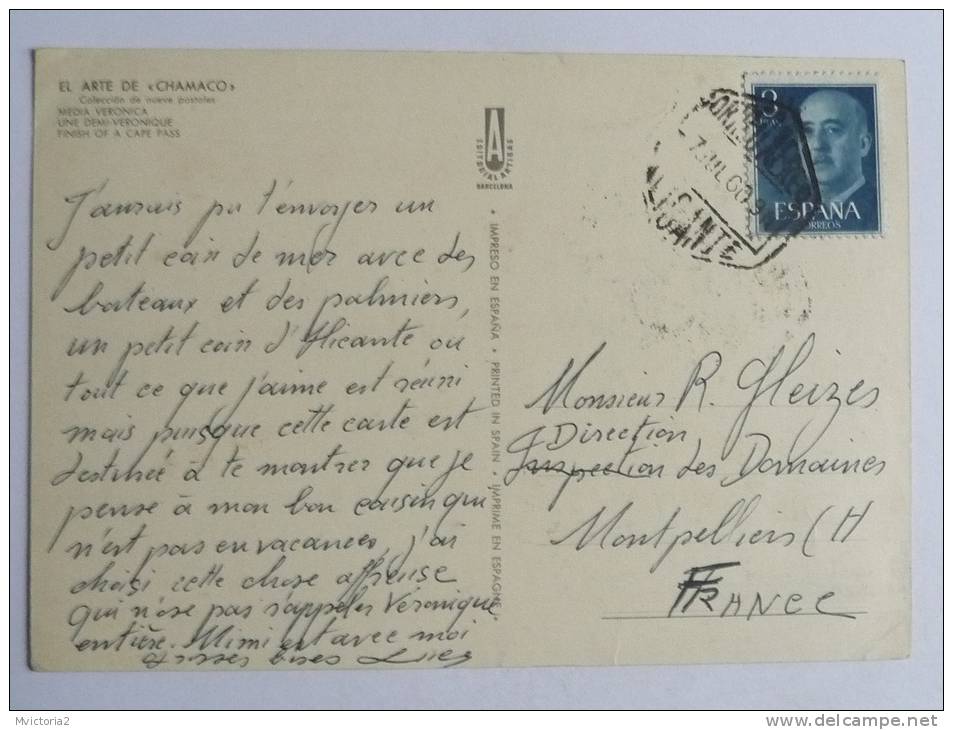 EL ARTE DE «CHAMACO»
Colección de nueve postales
MEDIA VERONICA
UNE DEMI-VERONIQUE
FINISH OF A CAPE PASS
A
EDITORIAL ARTIGAS
BARCELONA
• IMPRESO EN ESPAÑA • PRINTED IN SPAIN • IMPRIME EN ESPAGNE •
J'aurais pu t'envoyer un
petit coin de mer avec des
bateaux et des palmiers,
un petit coin d'Alicante ou
tout ce que j'aime est réuni
mais puisque cette carte est
destinée à te montrer que je
pense à mon bon cousin qui
n'est pas en vacances, j'ai
choisi cette chose affreuse
qui n'ose pas s'appeler Véronique
entière. Mimi est avec moi
bises
3
PTAS
ESPAÑA
CORREOS
7 JUL 60
ALICANTE
Monsieur R. Gleizes
Direction
Inspection des Domaines
Montpellier (H
FRANCE
Mvictoria2
www.delcampe.net